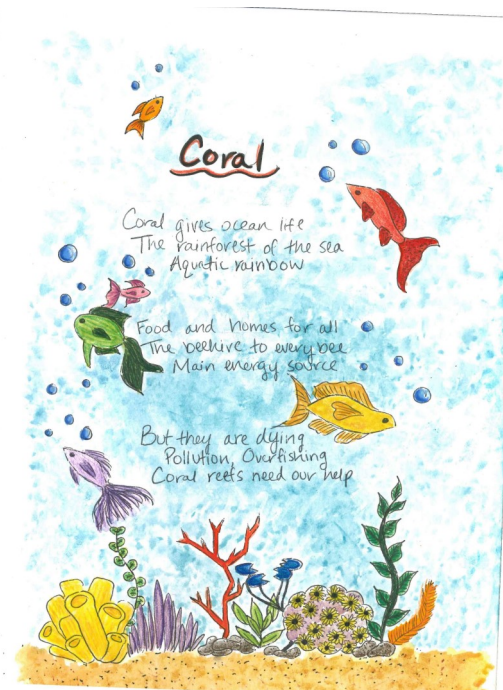 Coral
Coral gives ocean life
The rainforest of the sea
Aquatic rainbow
Food and homes for all
The beehive to every bee
Main energy source
But they are dying
Pollution, Overfishing
Coral reefs need our help